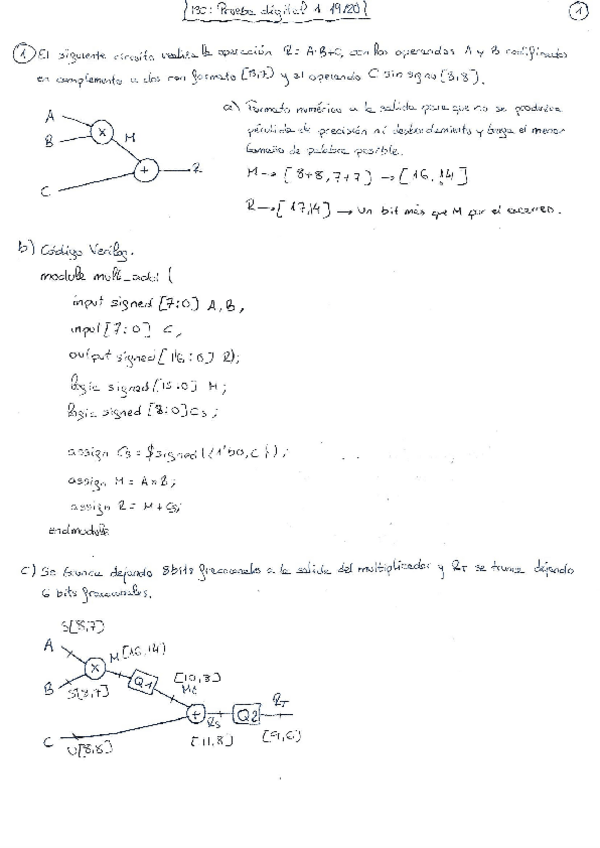 BC: Prueba digital 1 19/20
1
1 El siguiente circuito realiza la operación R = A·B+C, con los operandos A y B codificados
en complemento a dos con formato [8,7] y el operando C sin signo [8,8].
a) Formato numérico a la salida para que no se produzca
pérdida de precisión ni desbordamiento y tenga el menor
tamaño de palabra posible.
M → [8+8, 7+7] → [16,14]
R → [17,14] → Un bit más que M por el acarreo.
A
B
x
M
+
R
C
b) Código Verilog.
module mult_add (
input signed [7:0] A, B,
input [7:0] C,
output signed [16:0] R);
logic signed [15:0] M;
logic signed [8:0] Cs;
assign Cs = $signed({1'b0, C});
assign M = A*B;
assign R = M + Cs;
endmodule
c) Se trunca dejando 8 bits fraccionales a la salida del multiplicador y RT se trunca dejando
6 bits fraccionales.
S[8,7]
A
M [16,14]
x
Q1
[10,8]
Mt
B
S[8,7]
+
Rs
Q2
RT
C
U[8,8]
[11,8]
[9,6]